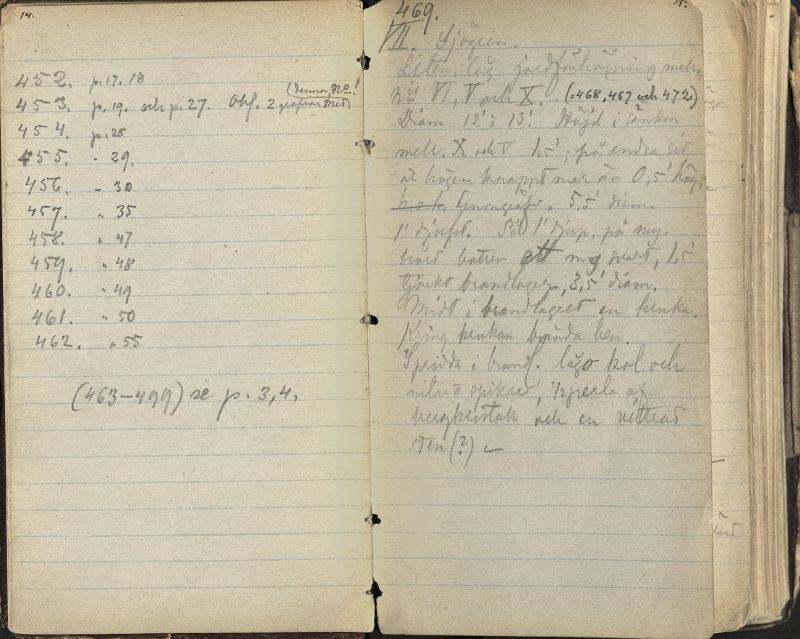 14.
452. p. 17. 18
(denna No!
453. p. 19. och p. 27. Obs. 2 grafvar med)
454. p. 28
455. " 29.
456. " 30
457. " 35
458. " 47
459. " 48
460. " 49
461. " 50
462. " 55
(463–499) se p. 3, 4.
15.
469.
VII. Sjögren.
Liten, låg jordförhöjning mell.
No VI, V och X. (=468, 467 och 472)
Diam. 12' à 13'. Höjd i sänkan
mell. X och V 1,5'; på andra sid
är högen knappt mer än 0,5' hög.
5,5' diam.
1' djupt. På 1' djup, på my.
hård botten ett mg svart, 1,5'
tjockt brandlager, 3,5' diam.
Midt i brandlagret en kruka.
Kring krukan brända ben.
Spridda i brandl. lågo kol och
spikar, 1/2 perla af
bergkristall och en vittrad
sten (?)